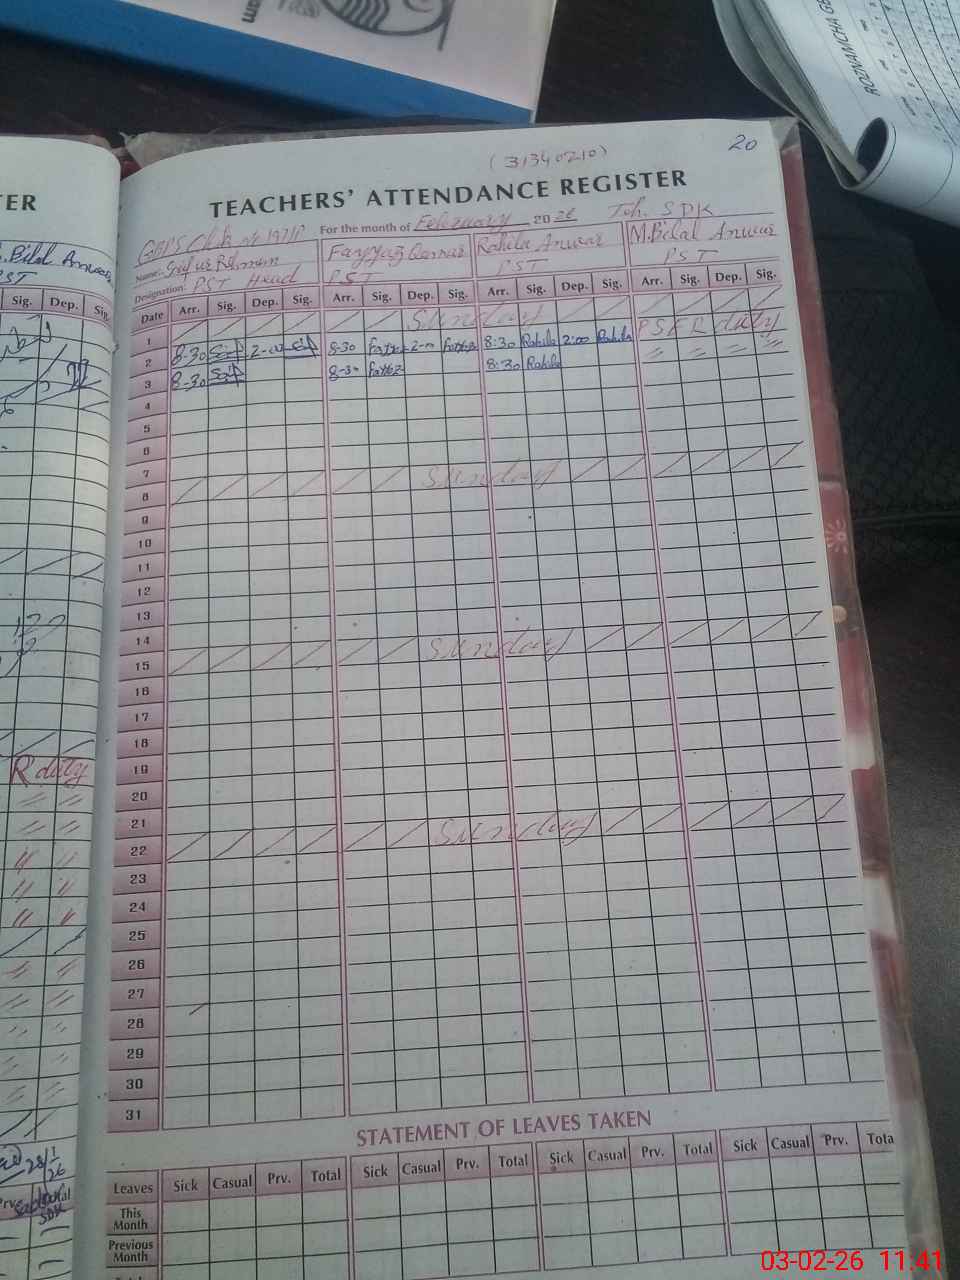 ROZNAMCHA
20
(31340210)
TEACHERS' ATTENDANCE REGISTER
For the month of February 2026 Teh. SDK
GBPS Chak No 197/P
Name: Saif ur Rehman Fayyaz Qamar Rahila Anwar M.Bilal Anwar
Designation: PST Head PST PST PST
Date Arr. Sig. Dep. Sig. Arr. Sig. Dep. Sig. Arr. Sig. Dep. Sig. Arr. Sig. Dep. Sig.
1 Sunday PSER duty
2 8-30 Saif 2-00 Saif 8-30 2-00 8:30 Rahila 2:00 Rahila
3 8-30 Saif 8-30 8:30 Rahila
4
5
6
7
8 Sunday
9
10
11
12
13
14
15 Sunday
16
17
18
19
20
21
22 Sunday
23
24
25
26
27
28
29
30
31
STATEMENT OF LEAVES TAKEN
Leaves Sick Casual Prv. Total Sick Casual Prv. Total Sick Casual Prv. Total Sick Casual Prv. Tota
This Month
Previous Month
TER
Bilal Anwar
PST
Sig. Dep. Sig.
R duty
28/1/26
SDK
03-02-26 11:41